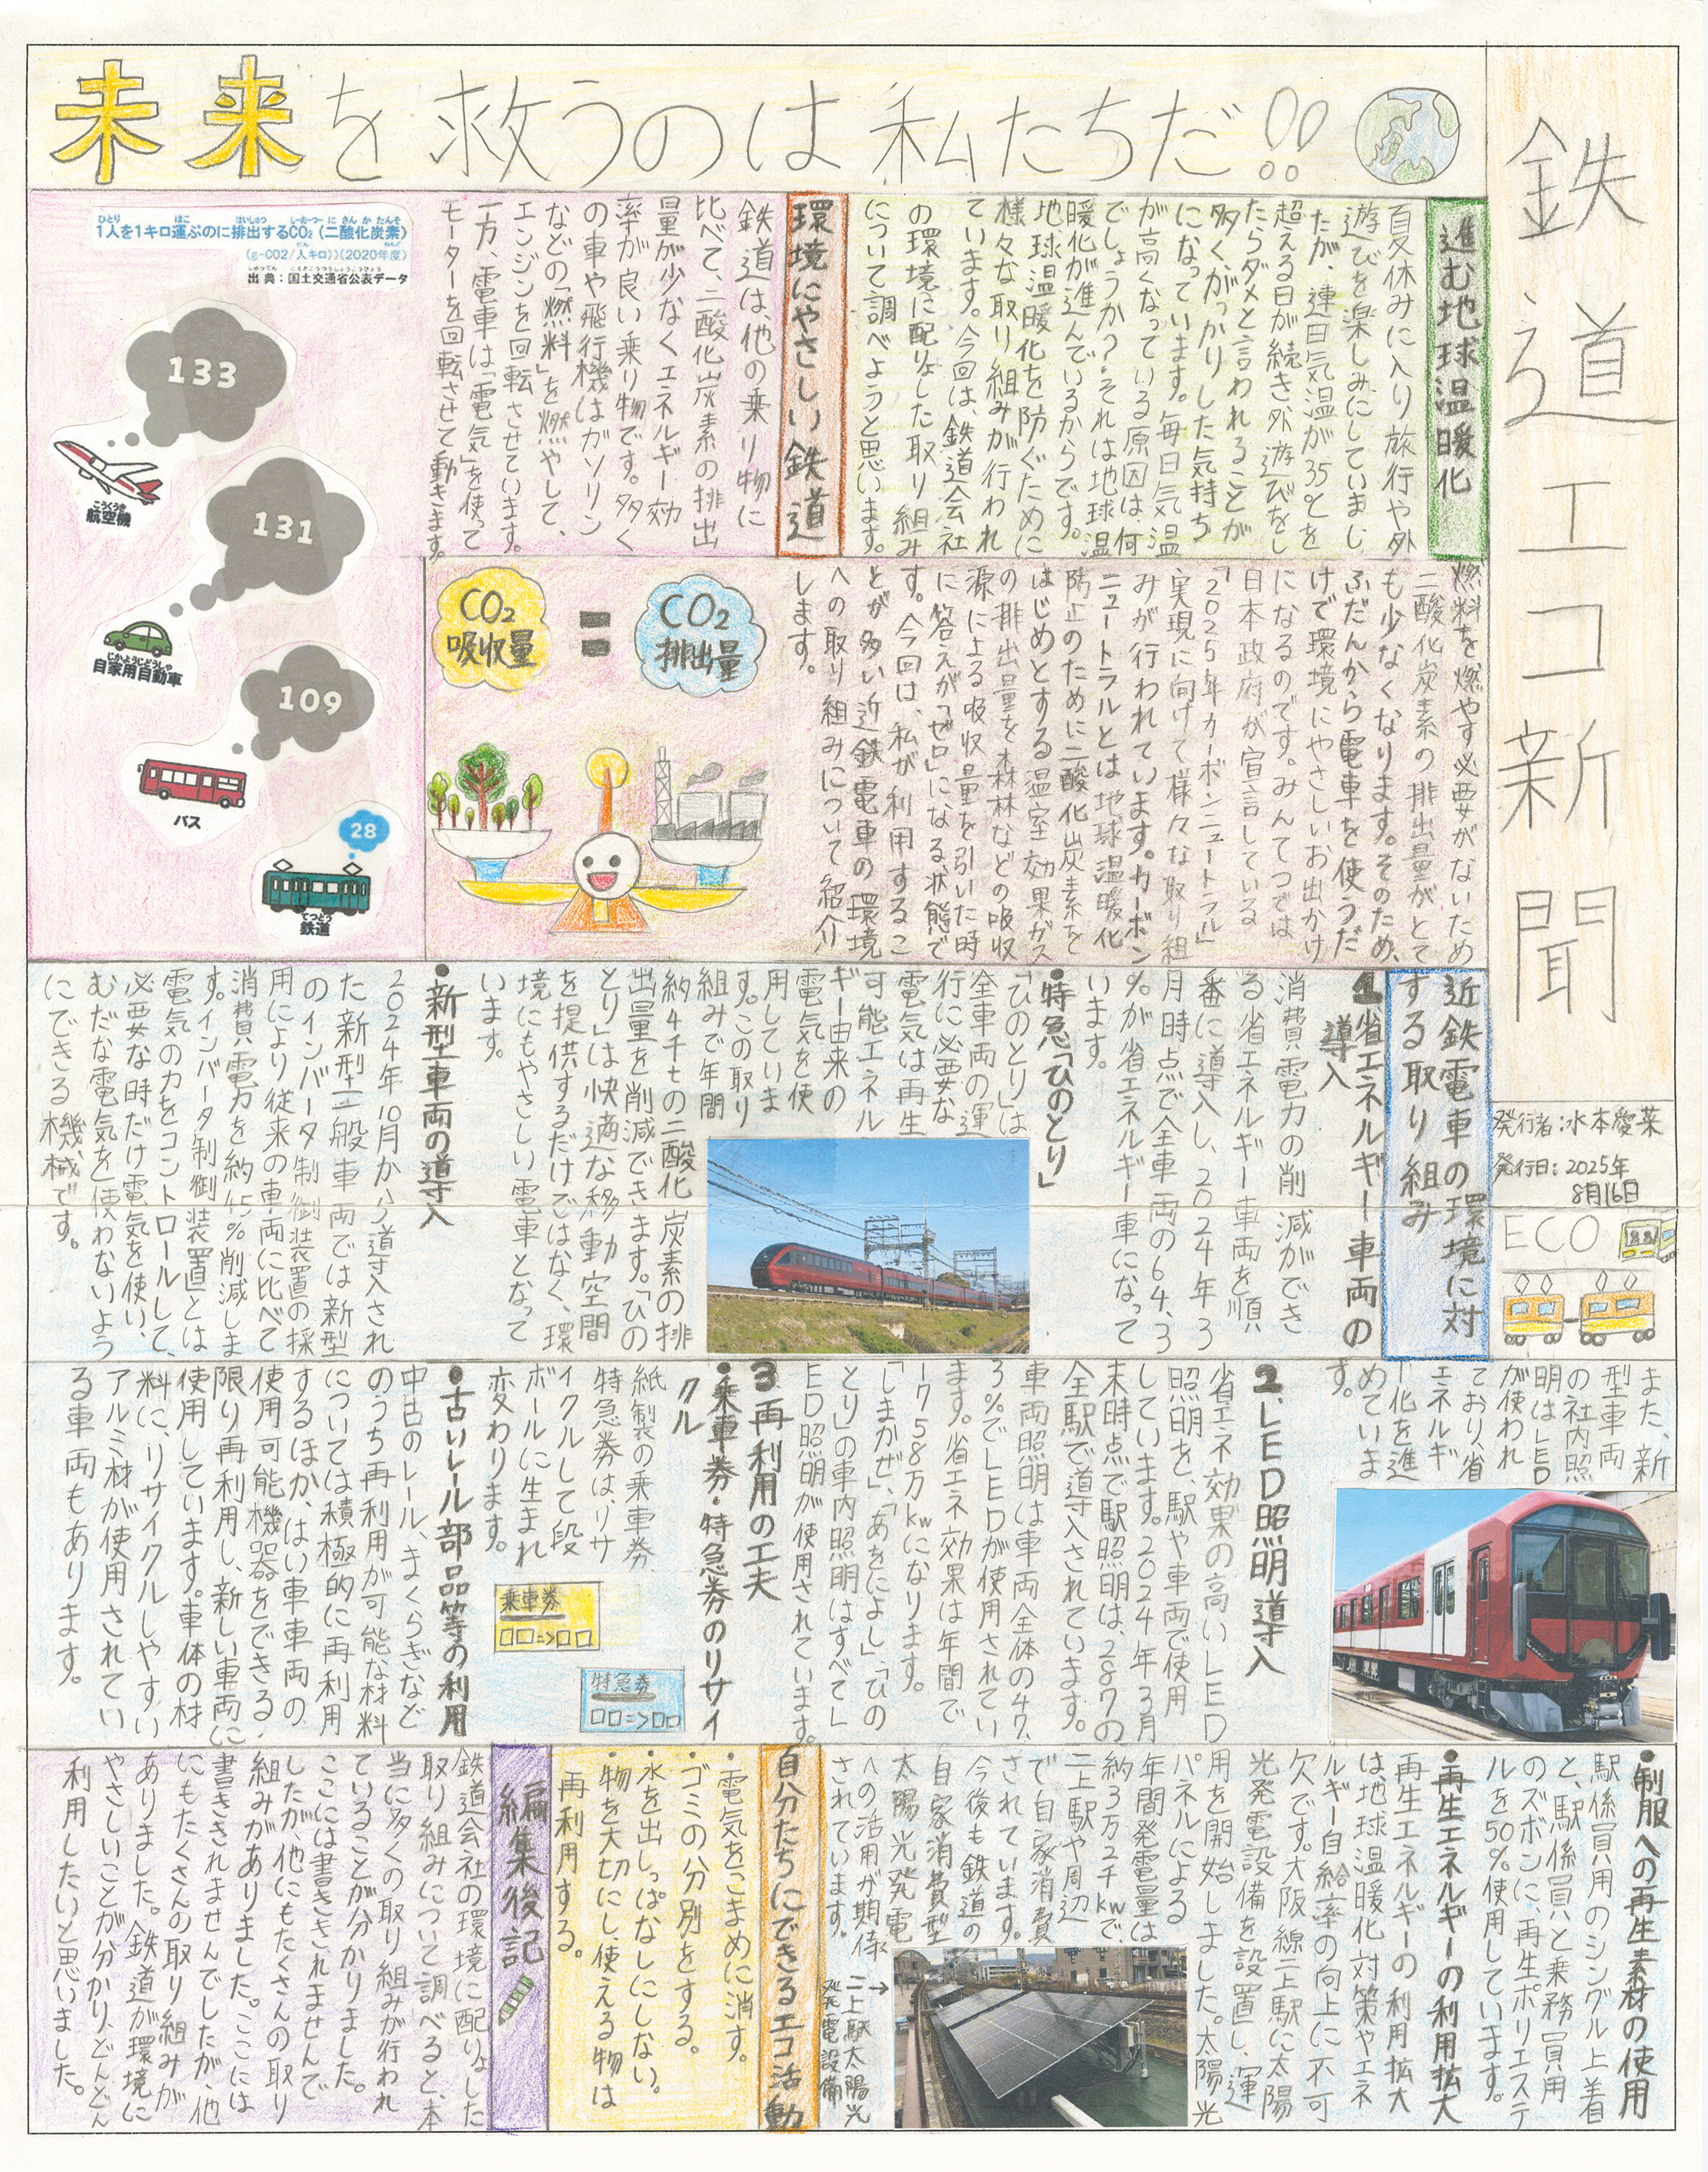 未来を救うのは私たちだ!!
鉄道エコ新聞
発行者:水本愛菜
発行日:2025年
8月16日
ECO
進む地球温暖化
夏休みに入り旅行や外
遊びを楽しみにしていまし
たが、連日気温が35℃を
超える日が続き外遊びをし
たらダメと言われることが
多くがっかりした気持ち
になっています。毎日気温
が高くなっている原因は、何
でしょうか?それは地球温
暖化が進んでいるからです。
地球温暖化を防ぐために
様々な取り組みが行われ
ています。今回は、鉄道会社
の環境に配りょした取り組み
について調べようと思います。
環境にやさしい鉄道
鉄道は、他の乗り物に
比べて、二酸化炭素の排出
量が少なくエネルギー効
率が良い乗り物です。多く
の車や飛行機はガソリン
などの「燃料」を燃やして、
エンジンを回転させています。
一方、電車は「電気」を使って
モーターを回転させて動きます。
燃料を燃やす必要がないため
二酸化炭素の排出量がとて
も少なくなります。そのため、
ふだんから電車を使うだ
けで環境にやさしいお出かけ
になるのです。みんてつでは
日本政府が宣言している
「2025年カーボンニュートラル」
実現に向けて様々な取り組
みが行われています。カーボン
ニュートラルとは地球温暖化
防止のために二酸化炭素を
はじめとする温室効果ガス
の排出量を森林などの吸収
源による吸収量を引いた時
に答えが「ゼロ」になる状態で
す。今回は、私が利用するこ
とが多い近鉄電車の環境
への取り組みについて紹介
します。
CO2
吸収量
=
CO2
排出量
ひとり はこ はいしゅつ しーおーつー にさんかたんそ
1人を1キロ運ぶのに排出するCO2(二酸化炭素)
(g-CO2/人キロ))(2020年度)
出典:国土交通省公表データ
133
こうくうき
航空機
131
じかようじどうしゃ
自家用自動車
109
バス
28
てつどう
鉄道
近鉄電車の環境に対
する取り組み
1省エネルギー車両の
導入
消費電力の削減ができ
る省エネルギー車両を順
番に導入し、2024年3
月時点で全車両の64.3
%が省エネルギー車になって
います。
・特急「ひのとり」
「ひのとり」は
全車両の運
行に必要な
電気は再生
可能エネル
ギー由来の
電気を使
用していま
す。この取り
組みで年間
約4千tの二酸化炭素の排
出量を削減できます。「ひの
とり」は快適な移動空間
を提供するだけではなく、環
境にもやさしい電車となって
います。
・新型車両の導入
2024年10月から導入され
た新型一般車両では新型
のインバータ制御装置の採
用により従来の車両に比べて
消費電力を約45%削減しま
す。インバータ制御装置とは
電気の力をコントロールして、
必要な時だけ電気を使い、
むだな電気を使わないよう
にできる機械です。
また、新
型車両
の社内照
明はLED
が使われ
ており、省
エネルギ
ー化を進
めていま
す。
2.LED照明導入
省エネ効果の高いLED
照明を、駅や車両で使用
しています。2024年3月
末時点で駅照明は、287の
全駅で導入されています。
車両照明は車両全体の47.
3%でLEDが使用されてい
ます。省エネ効果は年間で
758万kwになります。
「しまかぜ」、「あをによし」、「ひの
とり」の車内照明はすべてL
ED照明が使用されています。
3再利用の工夫
・乗車券・特急券のリサイ
クル
紙製の乗車券、
特急券は、リサ
イクルして段
ボールに生まれ
変わります。
乗車券
□□=>□□
特急券
□□=>□□
・古いレール部品等の利用
中古のレール、まくらぎなど
のうち再利用が可能な材料
については積極的に再利用
するほか、はい車車両の
使用可能機器をできる
限り再利用し、新しい車両に
使用しています。車体の材
料に、リサイクルしやすい
アルミ材が使用されてい
る車両もあります。
・制服への再生素材の使用
駅係員用のシングル上着
と、駅係員と乗務員用
のズボンに、再生ポリエステ
ルを50%使用しています。
・再生エネルギーの利用拡大
再生エネルギーの利用拡大
は地球温暖化対策やエネ
ルギー自給率の向上に不可
欠です。大阪線二上駅に太陽
光発電設備を設置し、運
用を開始しました。太陽光
パネルによる
年間発電量は
約3万2千kwで、
二上駅や周辺
で自家消費
されています。
今後も鉄道の
自家消費型
太陽光発電
への活用が期待
されています。
→二上駅太陽光
発電設備
自分たちにできるエコ活動
・電気をこまめに消す。
・ゴミの分別をする。
・水を出しっぱなしにしない。
・物を大切にし、使える物は
再利用する。
編集後記
鉄道会社の環境に配りょした
取り組みについて調べると、本
当に多くの取り組みが行われ
ていることが分かりました。
ここには書ききれませんで
したが、他にもたくさんの取り
組みがありました。ここには
書ききれませんでしたが、他
にもたくさんの取り組みが
ありました。鉄道が環境に
やさしいことが分かり、どんどん
利用したいと思いました。